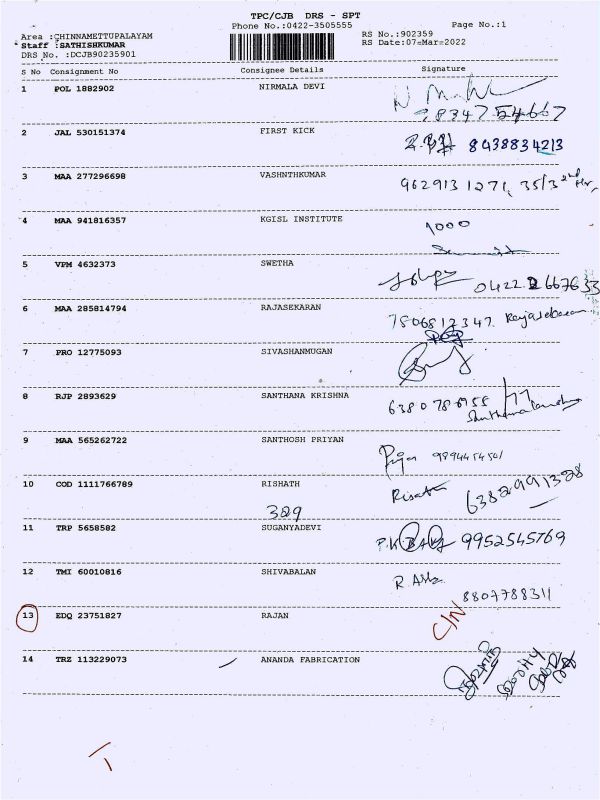 TPC/CJB DRS - SPT
Phone No.:0422-3505555
Page No.:1
Area :CHINNAMETTUPALAYAM
RS No.:902359
Staff :SATHISHKUMAR
RS Date:07-Mar-2022
DRS No. :DCJB90235901
S No Consignment No Consignee Details Signature
1 POL 1882902 NIRMALA DEVI
98347 54667
2 JAL 530151374 FIRST KICK 8438834213
3 MAA 277296698 VASHNTHKUMAR 9629131271, 35/3 2nd
4 MAA 941816357 KGISL INSTITUTE 1000
5 VPM 4632373 SWETHA
0422 2667633
6 MAA 285814794 RAJASEKARAN
7506812347 Rajasekaran
7 PRO 12775093 SIVASHANMUGAN
8 RJP 2893629 SANTHANA KRISHNA
9 MAA 565262722 SANTHOSH PRIYAN
Priya
10 COD 1111766789 RISHATH
6382991328
389
11 TRP 5658582 SUGANYADEVI
9952545769
12 TMI 60010816 SHIVABALAN
8807788311
13 EDQ 23751827 RAJAN C/N
14 TRZ 113229073 ANANDA FABRICATION